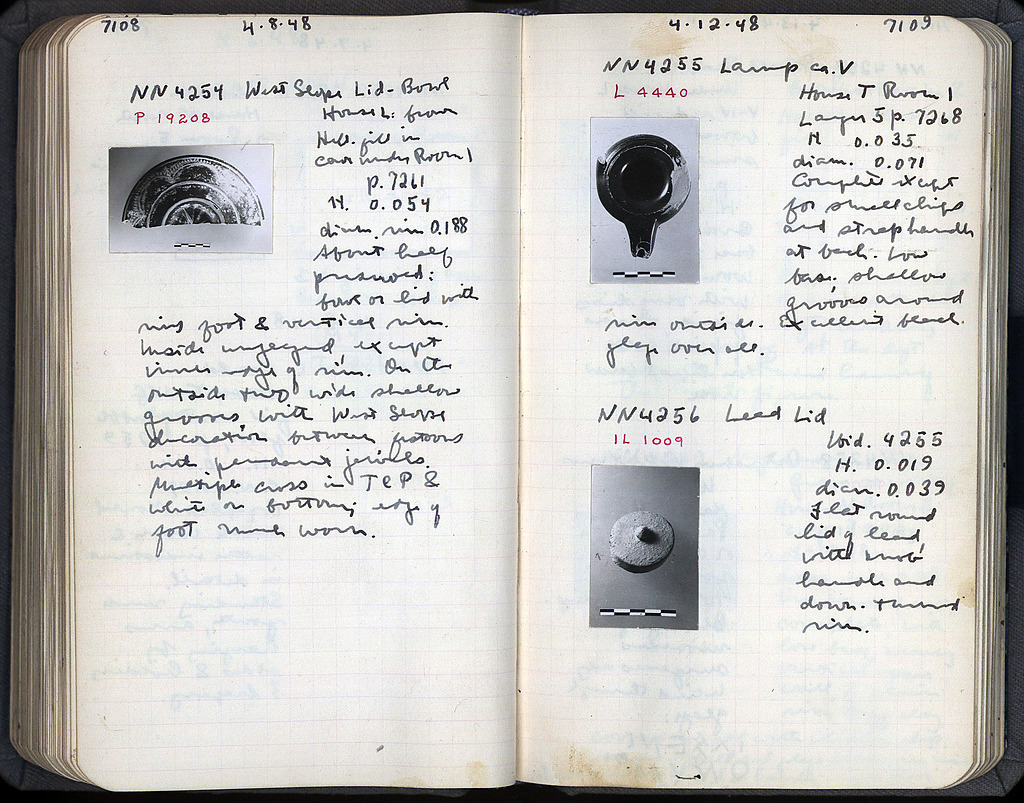 7108
4.8.48
NN4254 West Slope Lid-Bowl
P 19208
House L: from
Hell. fill in
cave under Room 1
p. 7261
H. 0.054
diam. rim 0.188
About half
preserved:
bowl or lid with
ring foot & vertical rim.
Inside unglazed except
inner edge of rim. On the
outside two wide shallow
grooves with West Slope
decoration between festoons
with pendant jewels.
Multiple cross in
white on bottom; edge of
foot much worn.
4.12.48
7109
NN4255 Lamp ca. V
L 4440
House T Room 1
Layer 5 p. 7268
H 0.035
diam. 0.071
Complete except
for small chips
and strap handle
at back. Low
base. shallow
grooves around
rim outside. Excellent black
glaze over all.
NN4256 Lead Lid
IL 1009
Ibid. 4255
H. 0.019
diam. 0.039
Flat round
lid of lead
with knob
handle and
down-turned
rim.